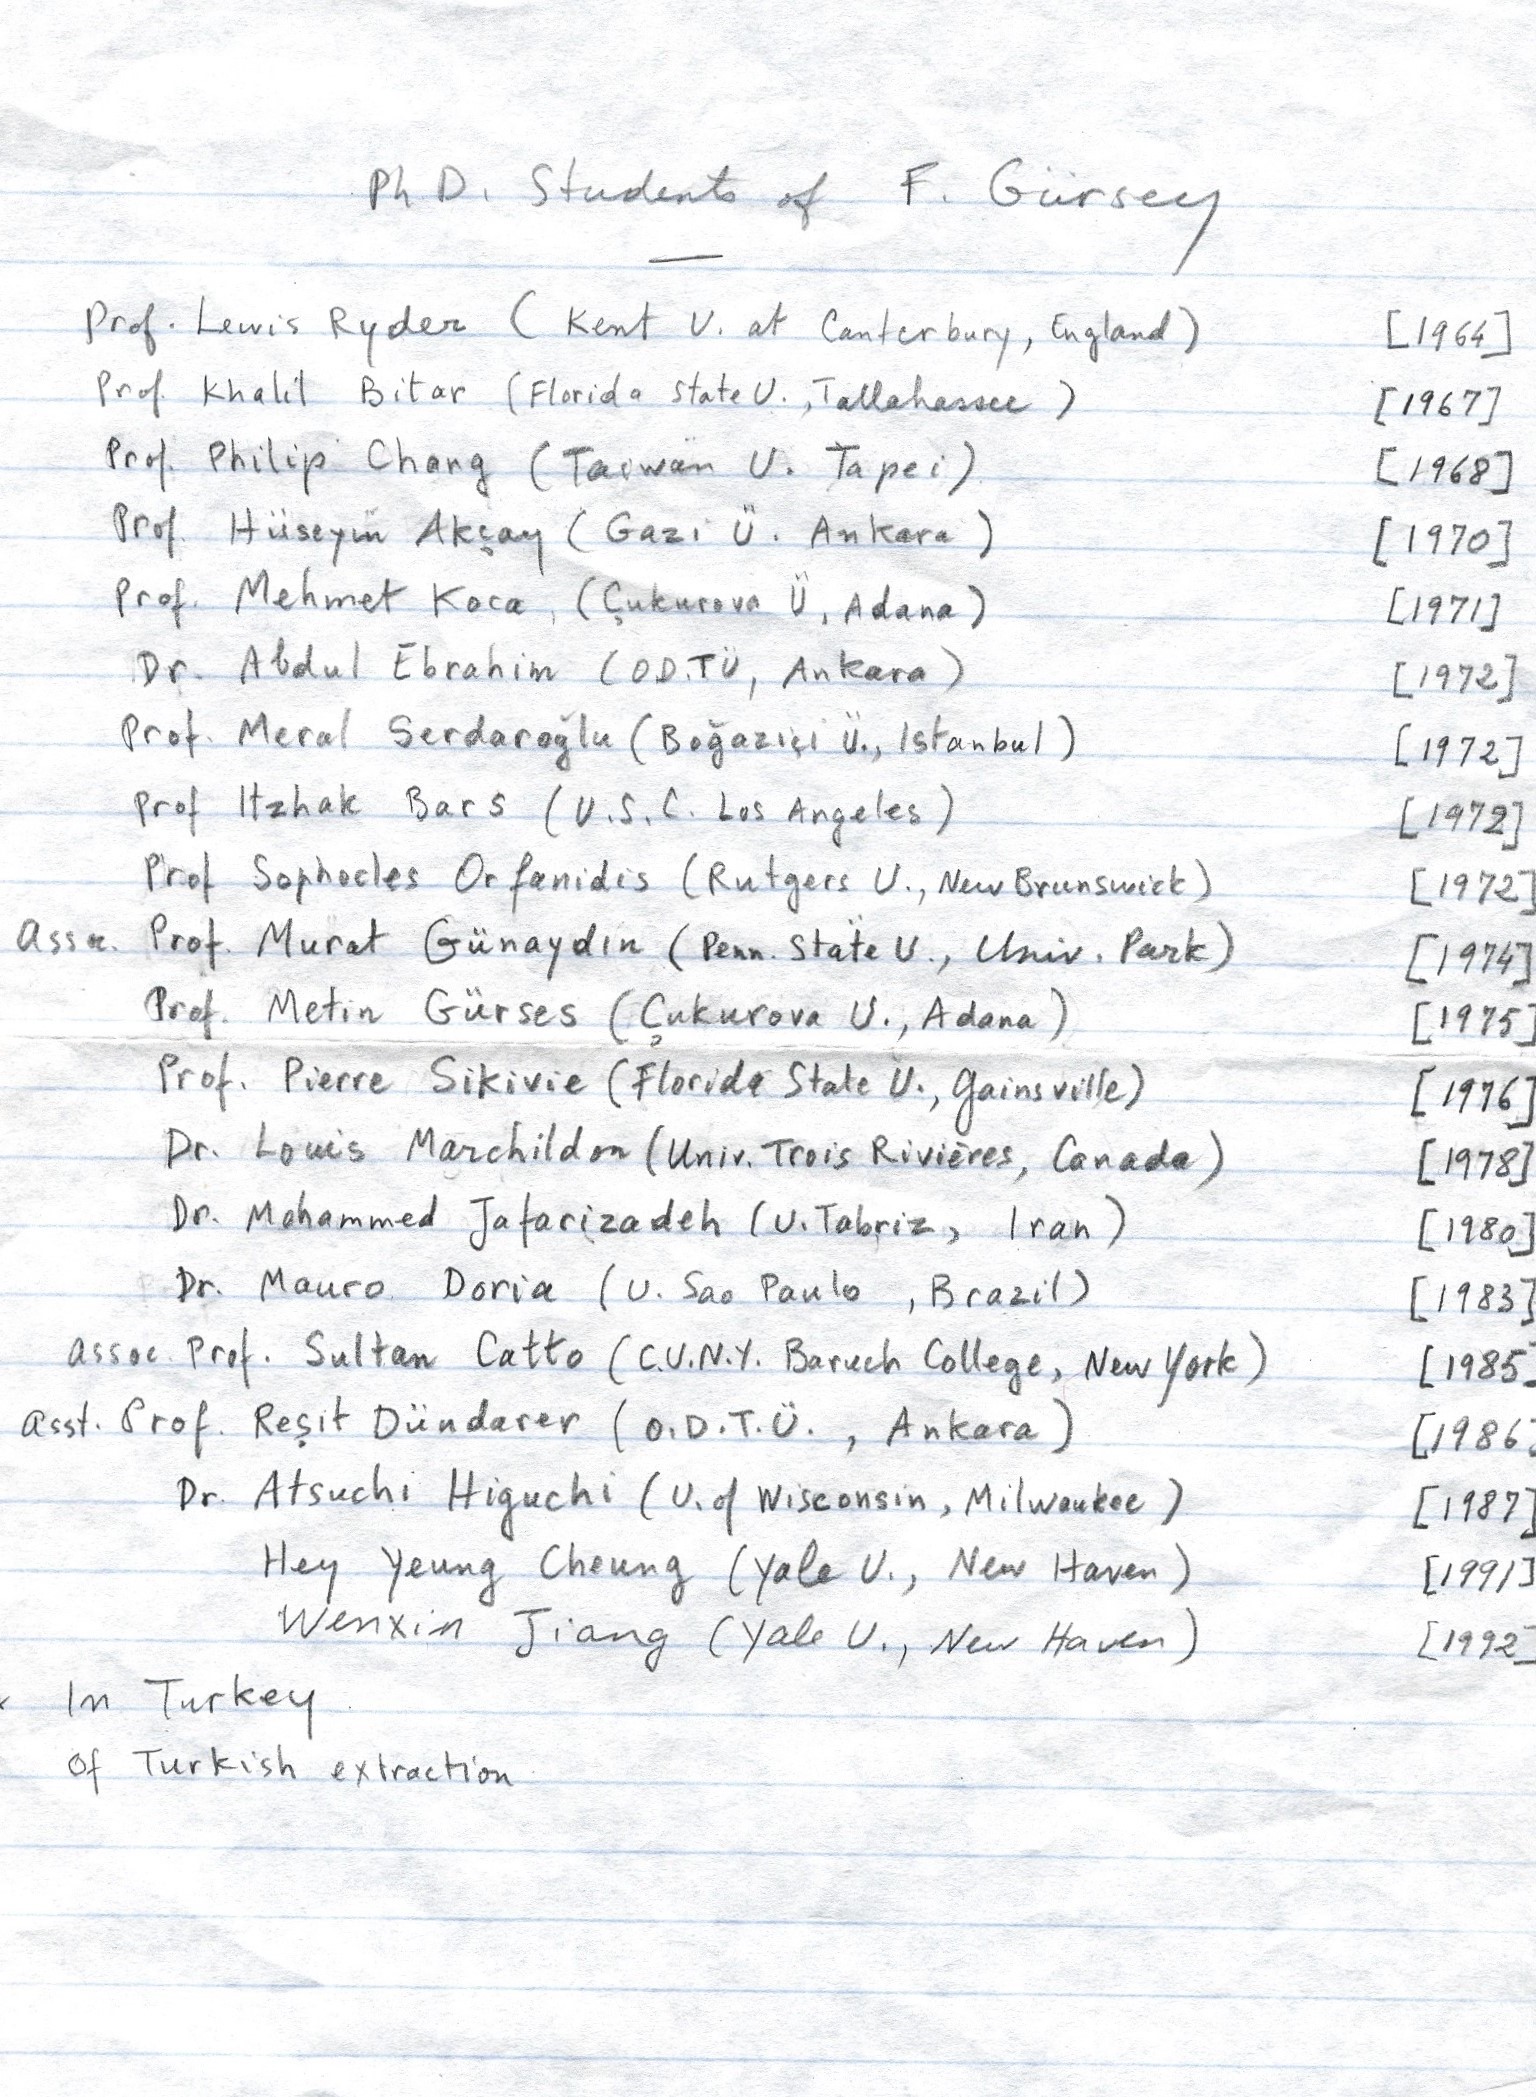 Ph D. Students of F. Gürsey
Prof. Lewis Ryder ( Kent U. at Canterbury, England) [1964]
Prof. Khalil Bitar (Florida State U., Tallahassee ) [1967]
Prof. Philip Chang (Taiwan U. Tapei) [1968]
Prof. Hüseyin Akçay ( Gazi Ü. Ankara ) [1970]
Prof. Mehmet Koca, (Çukurova Ü, Adana) [1971]
Dr. Abdul Ebrahim (O D.T Ü, Ankara) [1972]
Prof. Meral Serdaroğlu (Boğaziçi Ü., Istanbul) [1972]
Prof Itzhak Bars (U.S.C. Los Angeles) [1972]
Prof Sophocles Orfanidis (Rutgers U., New Brunswick) [1972]
Assoc. Prof. Murat Günaydın (Penn. State U., Univ. Park) [1974]
Prof. Metin Gürses (Çukurova U., Adana) [1975]
Prof. Pierre Sikivie (Florida State U., Gainsville) [1976]
Dr. Louis Marchildon (Univ. Trois Rivières, Canada) [1978]
Dr. Mohammed Jafarizadeh (U. Tabriz, Iran) [1980]
Dr. Mauro Doria (U. Sao Paulo , Brazil) [1983]
Assoc. Prof. Sultan Catto (C.U.N.Y. Baruch College, New York) [1985]
Asst. Prof. Reşit Dündarer (O.D.T.Ü. , Ankara) [1986]
Dr. Atsuchi Higuchi (U. of Wisconsin, Milwaukee ) [1987]
Hey Yeung Cheung (Yale U., New Haven) [1991]
Wenxin Jiang (Yale U., New Haven) [1992]
In Turkey
Of Turkish extraction